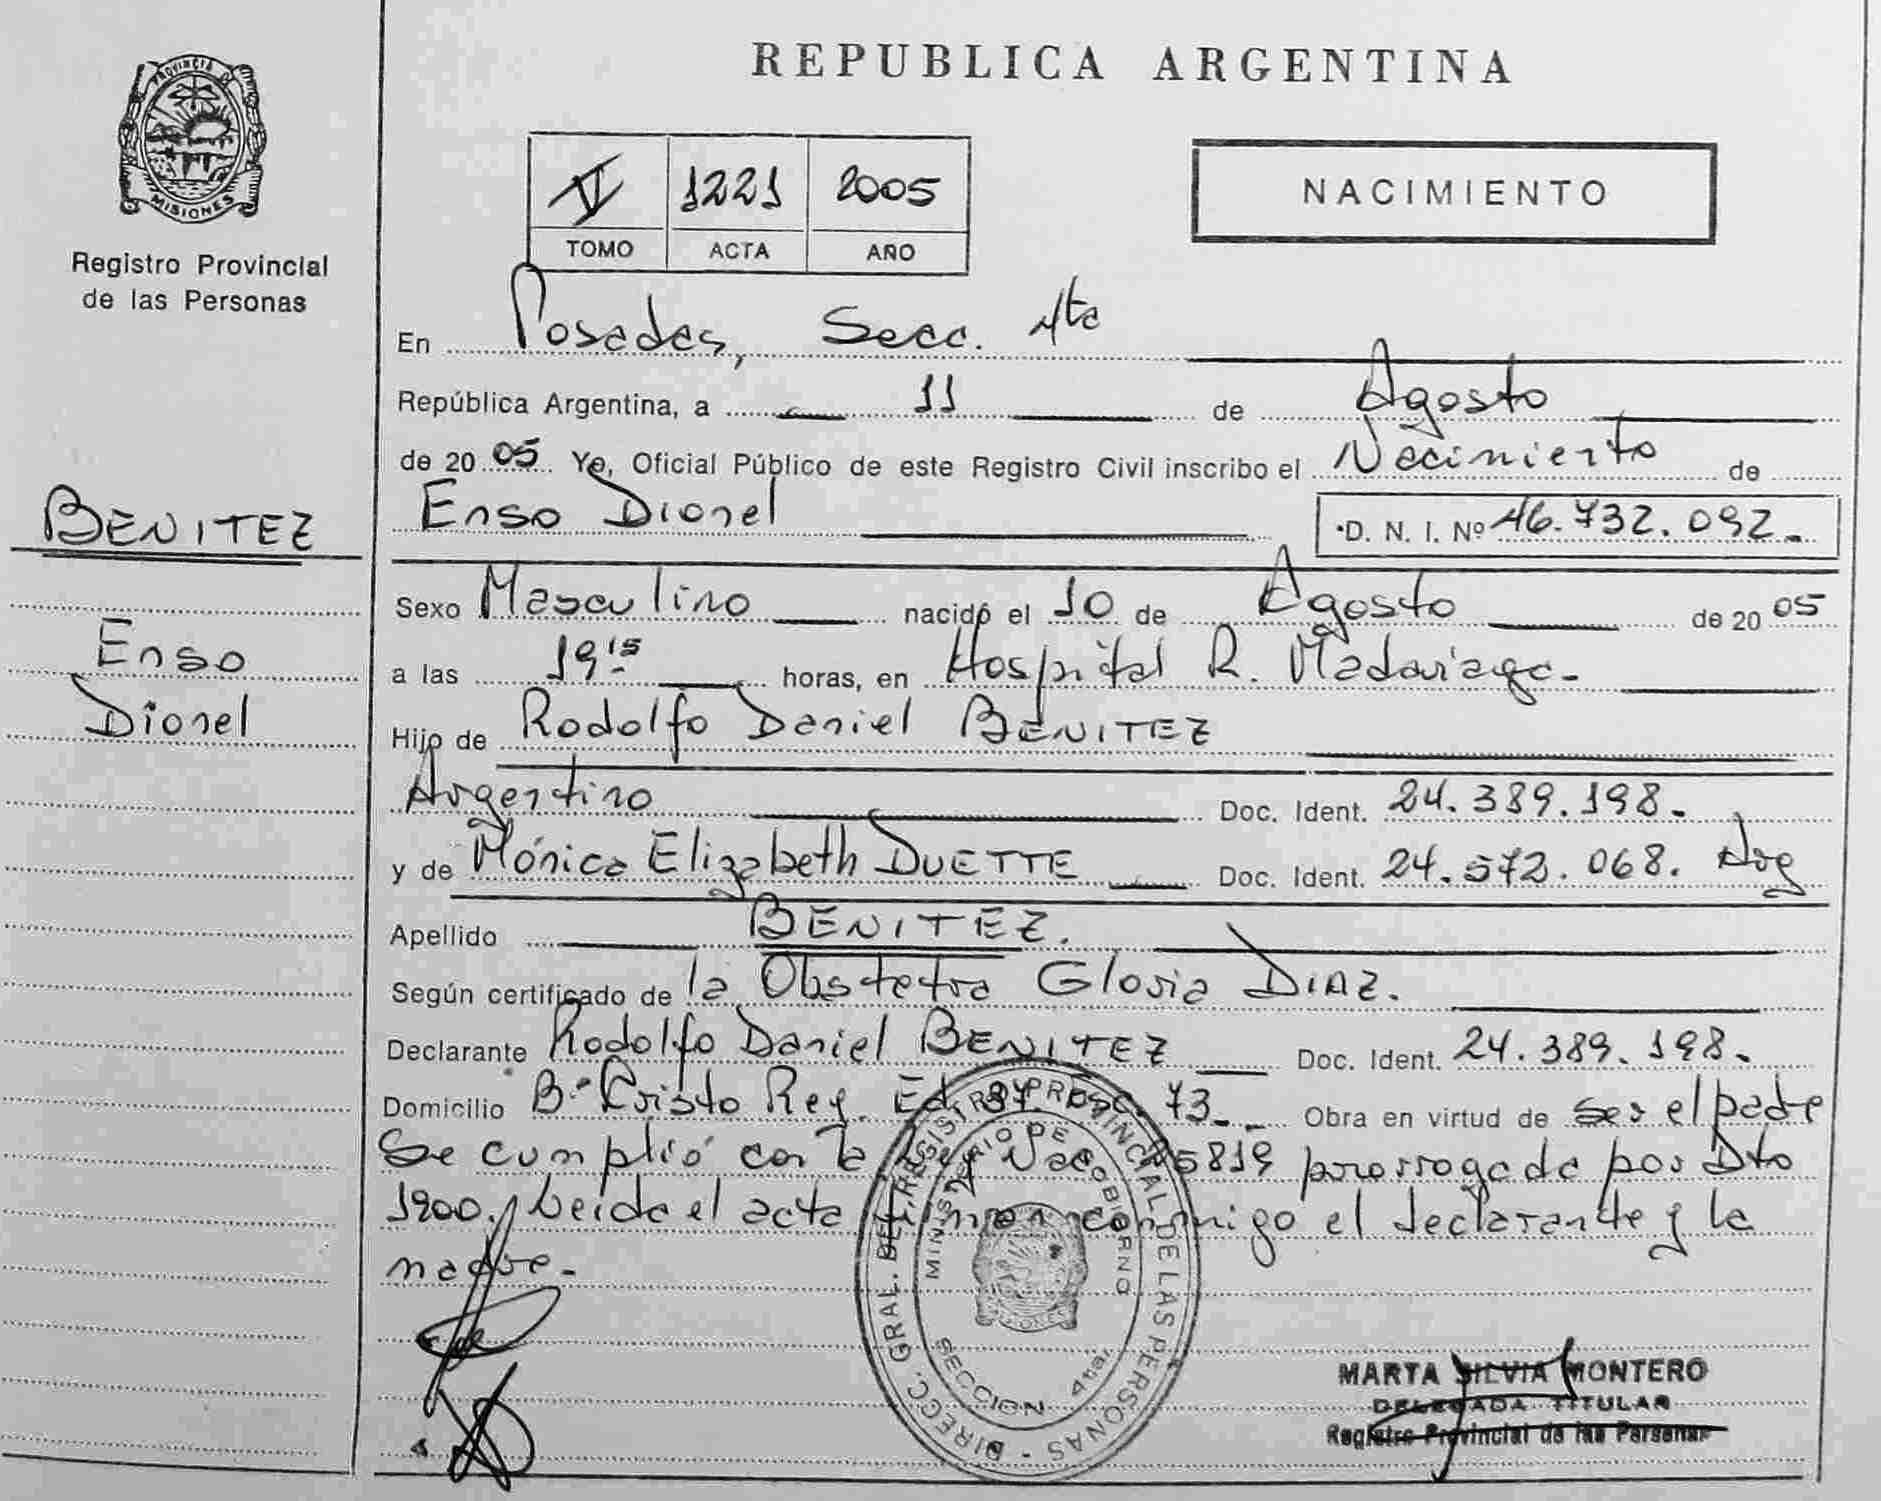 PROVINCIA DE
MISIONES
Registro Provincial
de las Personas
BENITEZ
Enso
Dionel
REPUBLICA ARGENTINA
1221 2005
TOMO ACTA AÑO
NACIMIENTO
En Posadas, Secc. 4ta
República Argentina, a 11 de Agosto
de 2005 Yo, Oficial Público de este Registro Civil inscribo el Nacimiento de
Enso Dionel D. N. I. Nº 46.732.092.-
Sexo Masculino nacido el 10 de Agosto de 2005
a las 19 15 horas, en Hospital R. Madariaga.-
Hijo de Rodolfo Daniel BENITEZ
Argentino Doc. Ident. 24.389.198.-
y de Mónica Elizabeth DUETTE Doc. Ident. 24.572.068. Arg
Apellido BENITEZ.
Según certificado de la Obstetra Gloria DIAZ.
Declarante Rodolfo Daniel BENITEZ Doc. Ident. 24.389.198.-
Domicilio Bº Cristo Rey. Ed. 37. Esc. 73.- Obra en virtud de ser el padre
Se cumplió con la Ley Nac. 25819 prorrogada por Dto
1900. Leida el acta firman conmigo el declarante y la
madre.-
DIRECC. GRAL. DEL REGISTRO PROVINCIAL DE LAS PERSONAS -
MINISTERIO DE GOBIERNO
SECCION 4ta.
MARTA SILVIA MONTERO
DELEGADA TITULAR
Registro Provincial de las Personas